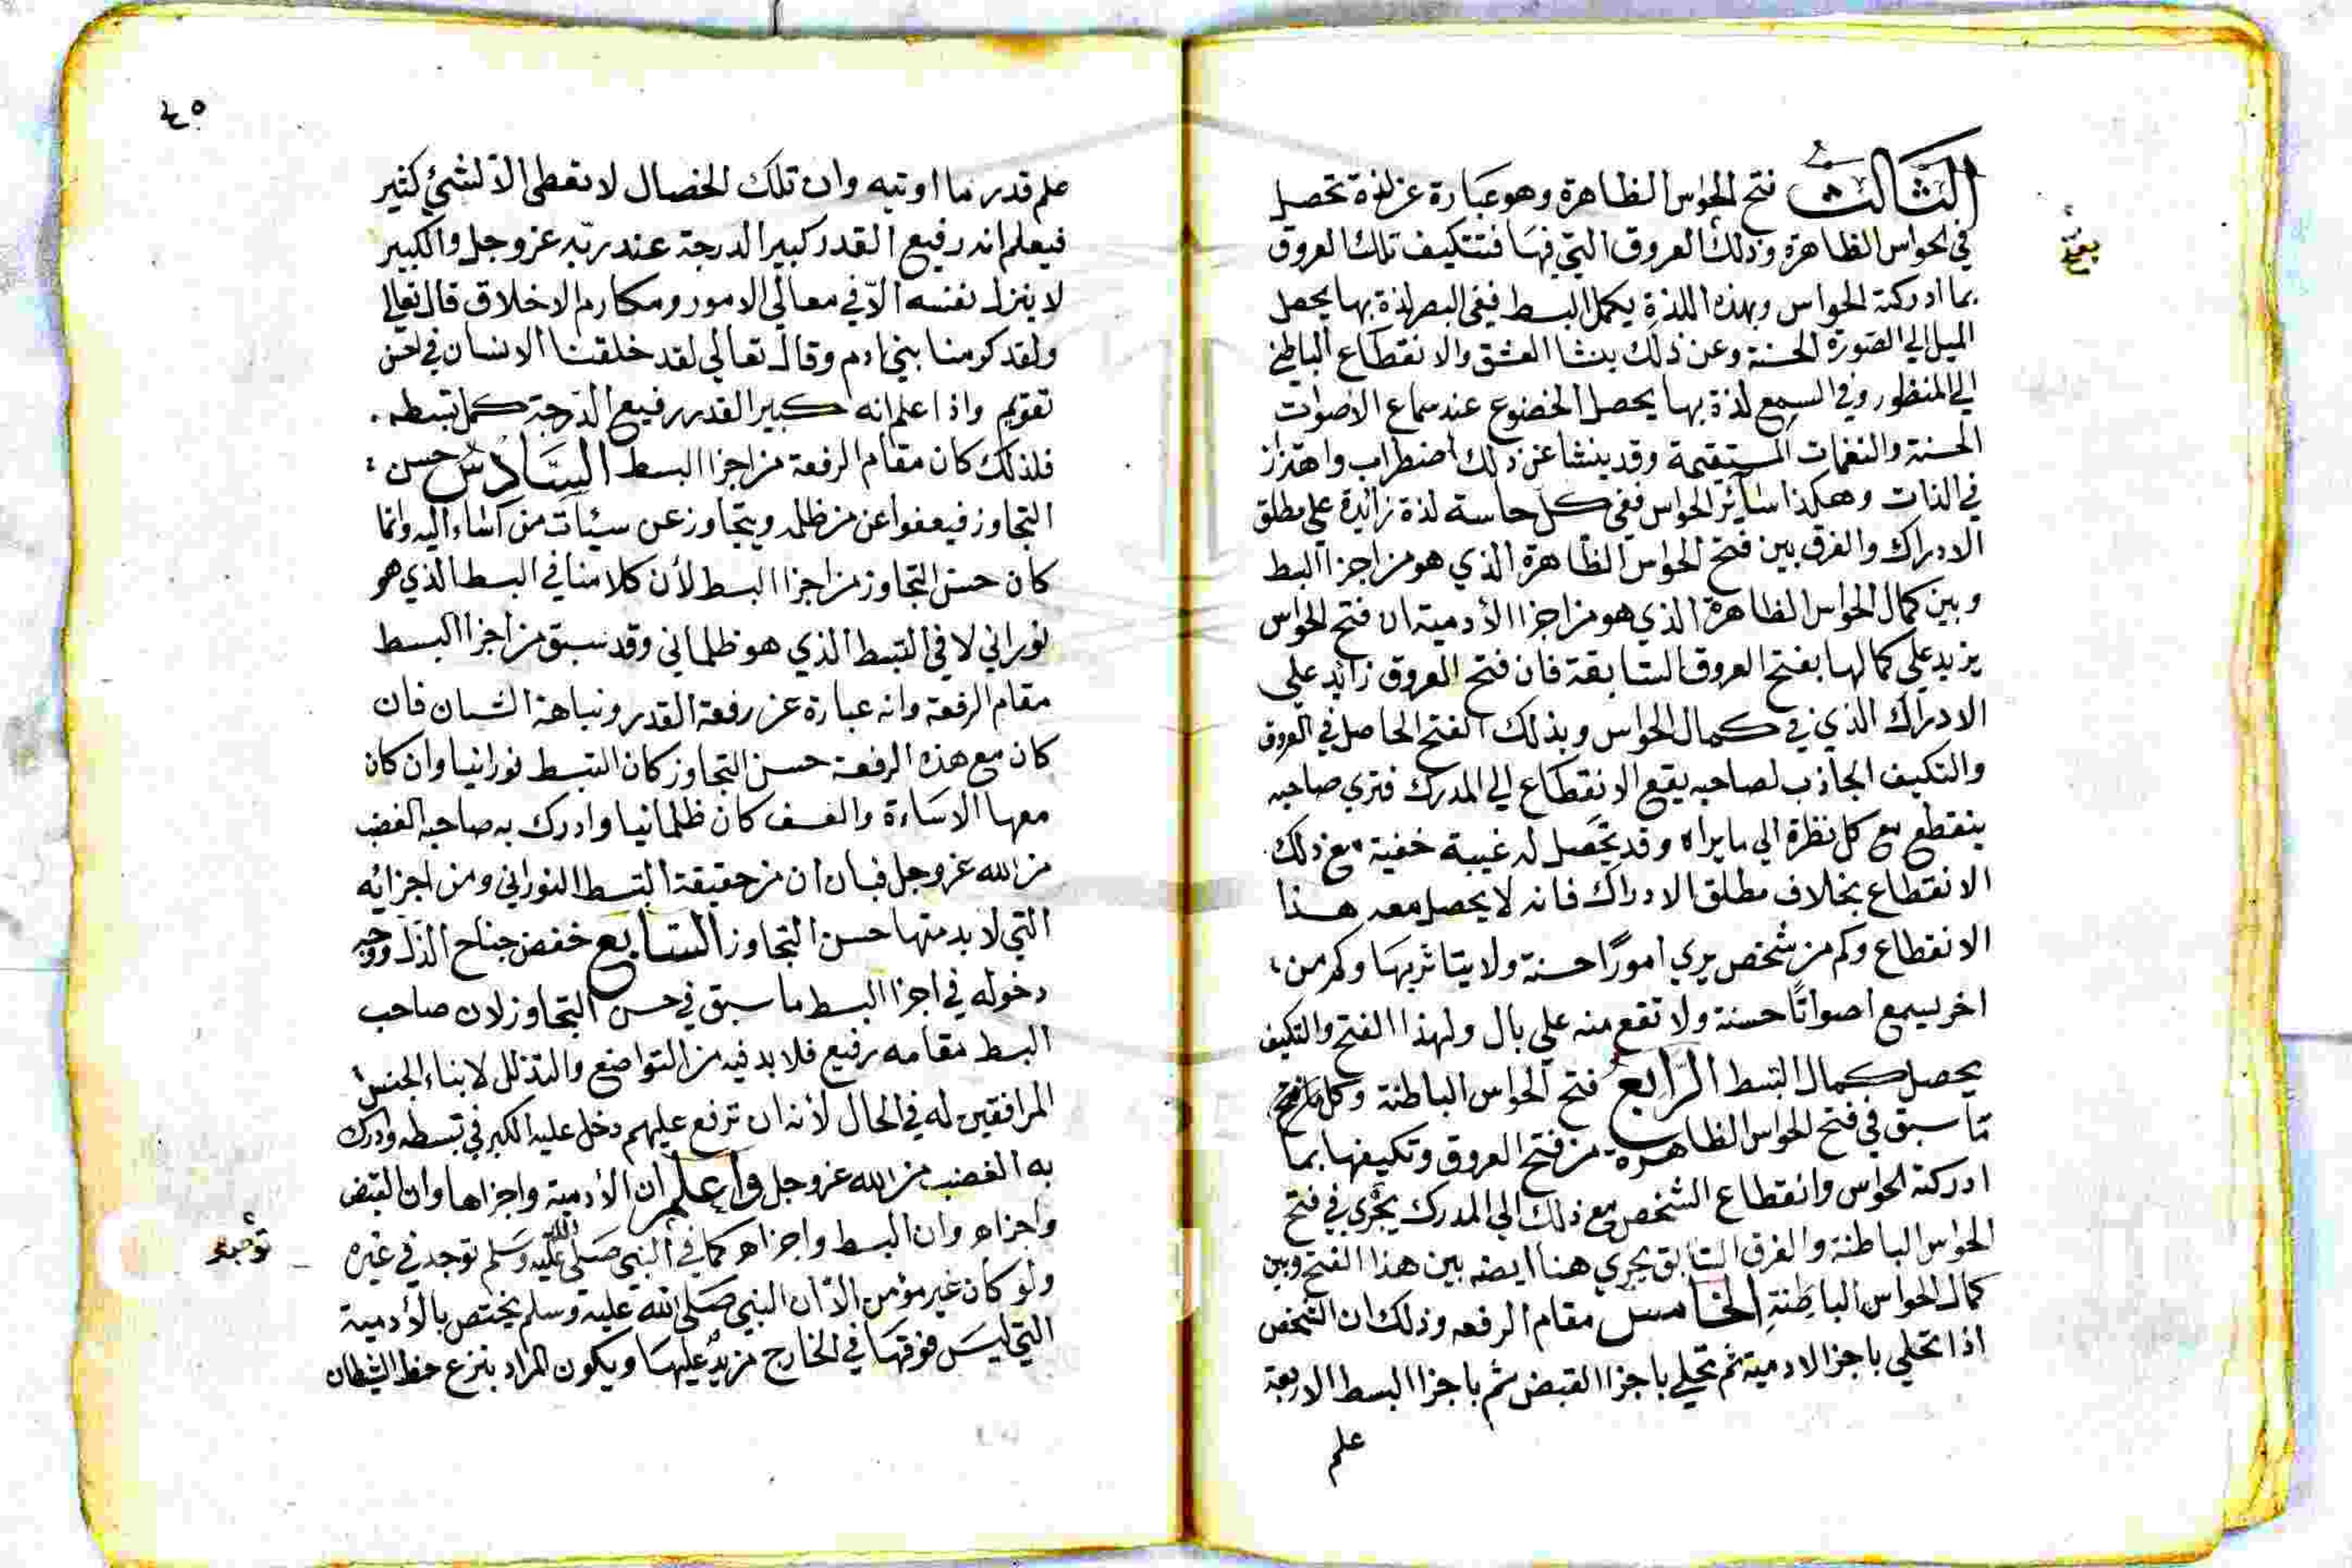 الثالث فتح الحواس الظاهرة وهو عبارة عن لذة تحصل
في الحواس الظاهرة وذلك العروق التي فيها فتتكيف تلك العروق
بما ادركته الحواس وبهذه اللذة يكمل البسط ففي البصر لذة بها يحصل
الميل الي الصورة الحسنة وعن ذلك ينشا العشق والانقطاع الباطني
الي المنظور وفي السمع لذة بها يحصل الخضوع عند سماع الاصوات
الحسنة والنغمات المستقيمة وقد ينشا عن ذلك اضطراب واهتزاز
في الذات وهكذا سائر الحواس ففي كل حاسة لذة زائدة علي مطلق
الادراك والفرق بين فتح الحواس الظاهرة الذي هو من اجزا البسط
وبين كمال الحواس الظاهرة الذي هو من اجزا الأدمية ان فتح الحواس
يزيد علي كمالها بفتح العروق السابقة فان فتح العروق زائد علي
الادراك الذي في كمال الحواس وبذلك الفتح الحاصل في العروق
والتكيف الجاذب لصاحبه يقع الانقطاع الي المدرك فتري صاحبه
ينقطع مع كل نظرة الي ما يراه وقد تحصل له غيبة خفيفة مع ذلك
الانقطاع بخلاف مطلق الادراك فانه لا يحصل معه هذا
الانقطاع وكم من شخص يري امورًا حسنة ولا يتاثر بها وكم من
اخر يسمع اصواتًا حسنة ولا تقع منه علي بال ولهذا الفتح والتكيف
يحصل كمال البسط الرابع فتح الحواس الباطنة وكل
ما سبق في فتح الحواس الظاهرة من فتح العروق وتكيفها بما
ادركته الحواس وانقطاع الشخص مع ذلك الي المدرك يجري في فتح
الحواس الباطنة والفرق السابق يجري هنا ايضه بين هذا الفتح وبين
كمال الحواس الباطنة الخامس مقام الرفعه وذلك ان الشخص
اذا تحلي باجزا الادمية ثم تحلي باجزا القبض ثم باجزا البسط الاربعة
علم
٤٥
علم قدر ما اوتيه وان تلك الخصال لا تعطى الا لشئ كثير
فيعلم انه رفيع القدر كبير الدرجة عند ربه عز وجل والكبير
لا ينزل نفسه الا في معالي الامور ومكارم الاخلاق قال تعالي
ولقد كرمنا بني ادم وقال تعالي لقد خلقنا الانسان في احسن
تقويم واذا علم انه كبير القدر رفيع الدرجة كمل بسطه
فلذلك كان مقام الرفعة من اجزا البسط السادس حسن
التجاوز فيعفوا عن من ظلمه ويتجاوز عن سيئات من اساء اليه وانما
كان حسن التجاوز من اجزا البسط لأن كلامنا في البسط الذي هو
نوراني لا في البسط الذي هو ظلماني وقد سبق من اجزا البسط
مقام الرفعة وانه عبارة عن رفعة القدر ونباهة الشان فان
كان مع هذه الرفعة حسن التجاوز كان البسط نورانيا وان كان
معها الاساءة والعسف كان ظلمانيا وادرك به صاحبه الغضب
من الله عز وجل فبان ان من حقيقة البسط النوراني ومن اجزائه
التي لا بد منها حسن التجاوز السابع خفض جناح الذل ووجه
دخوله في اجزا البسط ما سبق في حسن التجاوز لان صاحب
البسط مقامه رفيع فلا بد فيه من التواضع والتذلل لابناء الجنس
المرافقين له في الحال لأنه ان ترفع عليهم دخل عليه الكبر في بسطه وادرك
به الغضب من الله عز وجل واعلم ان الأدمية واجزاها وان القبض
واجزاه وان البسط واجزاه كما في النبي صلى الله عليه وسلم توجد في غيره
ولو كان غير مؤمن الا أن النبي صلى الله عليه وسلم يختص بالأدمية
التي ليس فوقها في الخارج مزيد عليها ويكون المراد بنزع حظ الشيطان